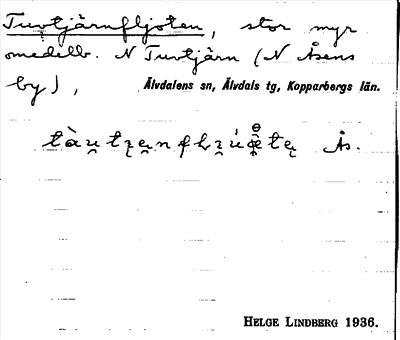 Tuvtjärnfljoten, stor myr
omedelb. N Tuvtjärn (N Åsens
by), Älvdalens sn, Älvdals tg, Kopparbergs län.
Ås.
HELGE LINDBERG 1936.